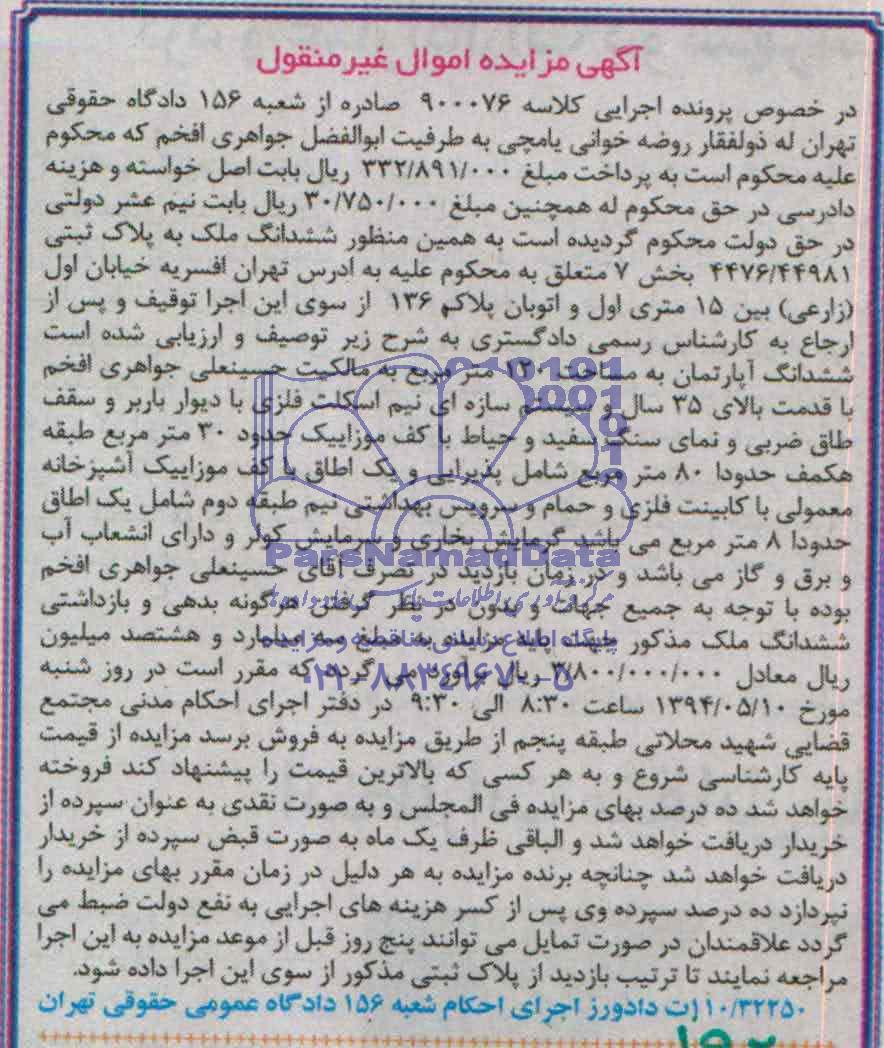 آگهی مزایده اموال غیر منقول
در خصوص پرونده اجرایی کلاسه ۹۰۰۰۷۶ صادره از شعبه ۱۵۶ دادگاه حقوقی
تهران له ذولفقار روضه خوانی یامچی به طرفیت ابوالفضل جواهری افخم که محکوم
علیه محکوم است به پرداخت مبلغ ۳۳۲/۸۹۱/۰۰۰ ریال بابت اصل خواسته و هزینه
دادرسی در حق محکوم له همچنین مبلغ ۳۰/۷۵۰/۰۰۰ ریال بابت نیم عشر دولتی
در حق دولت محکوم گردیده است به همین منظور ششدانگ ملک به پلاک ثبتی
۴۴۷۶/۴۴۹۸۱ بخش ۷ متعلق به محکوم علیه به ادرس تهران افسریه خیابان اول
(زارعی) بین ۱۵ متری اول و اتوبان پلاک ۱۳۶ از سوی این اجرا توقیف و پس از
ارجاع به کارشناس رسمی دادگستری به شرح زیر توصیف و ارزیابی شده است
ششدانگ آپارتمان به مساحت ۱۲۰ متر مربع به مالکیت حسینعلی جواهری افخم
با قدمت بالای ۳۵ سال و سیستم سازه ای نیم اسکلت فلزی با دیوار باربر و سقف
طاق ضربی و نمای سنگ سفید و حیاط با کف موزاییک حدود ۳۰ متر مربع طبقه
هکمف حدودا ۸۰ متر مربع شامل پذیرایی و یک اطاق با کف موزاییک آشپزخانه
معمولی با کابینت فلزی و حمام و سرویس بهداشتی نیم طبقه دوم شامل یک اطاق
حدودا ۸ متر مربع می باشد گرمایش بخاری و سرمایش کولر و دارای انشعاب آب
و برق و گاز می باشد و در زمان بازدید در تصرف آقای حسینعلی جواهری افخم
بوده با توجه به جمیع جهات و بدون در نظر گرفتن هرگونه بدهی و بازداشتی
ششدانگ ملک مذکور جهت پایه مزایده به مبلغ سه میلیارد و هشتصد میلیون
ریال معادل ۳/۸۰۰/۰۰۰/۰۰۰ ریال برآورد می گردد که مقرر است در روز شنبه
مورخ ۱۳۹۴/۰۵/۱۰ ساعت ۸:۳۰ الی ۹:۳۰ در دفتر اجرای احکام مدنی مجتمع
قضایی شهید محلاتی طبقه پنجم از طریق مزایده به فروش برسد مزایده از قیمت
پایه کارشناسی شروع و به هر کسی که بالاترین قیمت را پیشنهاد کند فروخته
خواهد شد ده درصد بهای مزایده فی المجلس و به صورت نقدی به عنوان سپرده از
خریدار دریافت خواهد شد و الباقی ظرف یک ماه به صورت قبض سپرده از خریدار
دریافت خواهد شد چنانچه برنده مزایده به هر دلیل در زمان مقرر بهای مزایده را
نپردازد ده درصد سپرده وی پس از کسر هزینه های اجرایی به نفع دولت ضبط می
گردد علاقمندان در صورت تمایل می توانند پنج روز قبل از موعد مزایده به این اجرا
مراجعه نمایند تا ترتیب بازدید از پلاک ثبتی مذکور از سوی این اجرا داده شود.
۱۰/۳۲۲۵۰/ت دادورز اجرای احکام شعبه ۱۵۶ دادگاه عمومی حقوقی تهران
ParsNamadData